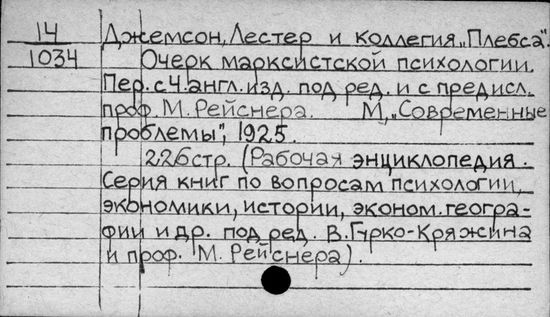 14 Джемсон, Лестер и коллегия „Плебса".
1034 Очерк марксистской психологии.
Пер. с 4. англ. изд. под ред. и с предисл.
проф. М. Рейснера. М., „Современные
проблемы", 1925.
226 стр. (Рабочая энциклопедия.
Серия книг по вопросам психологии,
экономики, истории, эконом. геогра-
фии и др. под ред. В. Гурко-Кряжина
и проф. М. Рейснера).